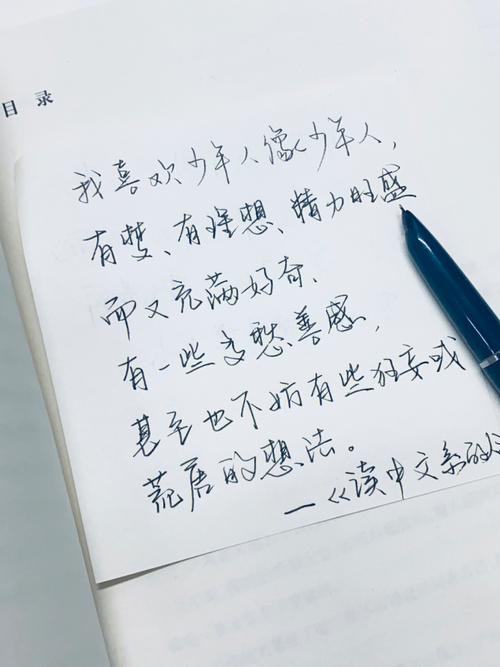 目录
我喜欢少年人像少年人,
有梦、有理想、精力旺盛
而又充满好奇、
有一些多愁善感,
甚至也不妨有些狂妄或
荒唐的想法。
—《读中文系的